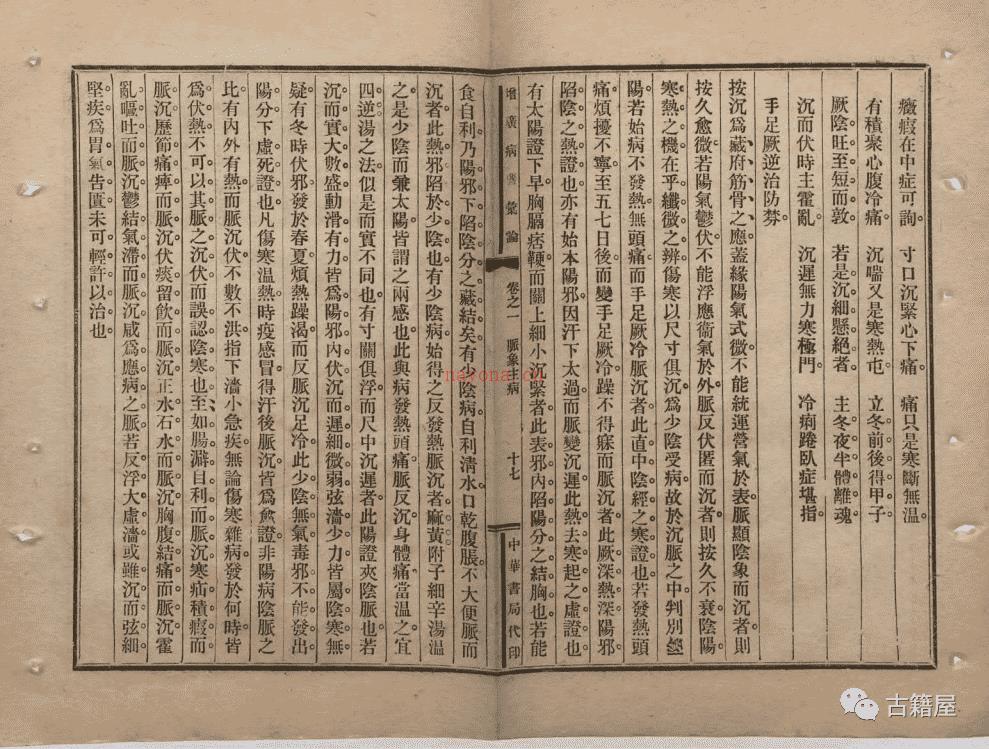 癥瘕在中症可詢　寸口沉緊心下痛　痛只是寒斷無温
有積聚心腹冷痛　沉喘又是寒熱屯　立冬前後得甲子
厥陰旺至短而敦　若是沉細懸絕者　主冬夜半體離魂
沉而伏時主霍亂　沉遲無力寒極門　冷痢踡臥症堪指
手足厥逆治防棼
按沉爲藏府筋骨之應蓋緣陽氣式微不能統運營氣於表脈顯陰象而沉者則
按久愈微若陽氣鬱伏不能浮應衞氣於外脈反伏匿而沉者則按久不衰陰陽
寒熱之機在乎纖微之辨傷寒以尺寸俱沉爲少陰受病故於沉脈之中判別
陽若始病不發熱無頭痛而手足厥冷脈沉者此直中陰經之寒證也若發熱頭
痛煩擾不寧至五七日後而變手足厥冷躁不得寐而脈沉者此厥深熱深陽邪
陷陰之熱證也亦有始本陽邪因汗下太過而脈變沉遲此熱去寒起之虛證也
有太陽證下早胸膈痞鞕而關上細小沉緊者此表邪內陷陽分之結胸也若能
增廣病機彙論　卷之一　脈象主病　十七　中華書局代印
食自利乃陽邪下陷陰分之藏結矣有少陰病自利清水口乾腹脹不大便脈而
沉者此熱邪陷於少陰也有少陰病始得之反發熱脈沉者麻黃附子細辛湯温
之是少陰而兼太陽皆謂之兩感也此與病發熱頭痛脈反沉身體痛當温之宜
四逆湯之法似是而實不同也有寸關俱浮而尺中沉遲者此陽證夾陰脈也若
沉而實大數盛動滑有力皆爲陽邪內伏沉而遲細微弱弦濇少力皆屬陰寒無
疑有冬時伏邪發於春夏煩熱躁渴而反脈沉足冷此少陰無氣毒邪不能發出
陽分下虛死證也凡傷寒温熱時疫感冒得汗後脈沉皆爲愈證非陽病陰脈之
比有內外有熱而脈沉伏不數不洪指下濇小急疾無論傷寒雜病發於何時皆
爲伏熱不可以其脈之沉伏而誤認陰寒也至如腸澼自利而脈沉寒疝積瘕而
脈沉歷節痛痺而脈沉伏痰留飲而脈沉正水石水而脈沉胸腹結痛而脈沉霍
亂嘔吐而脈沉鬱結氣滯而脈沉咸爲應病之脈若反浮大虛濇或雖沉而弦細
堅疾爲胃氣告匱未可輕許以治也
nayona.cn
古籍屋